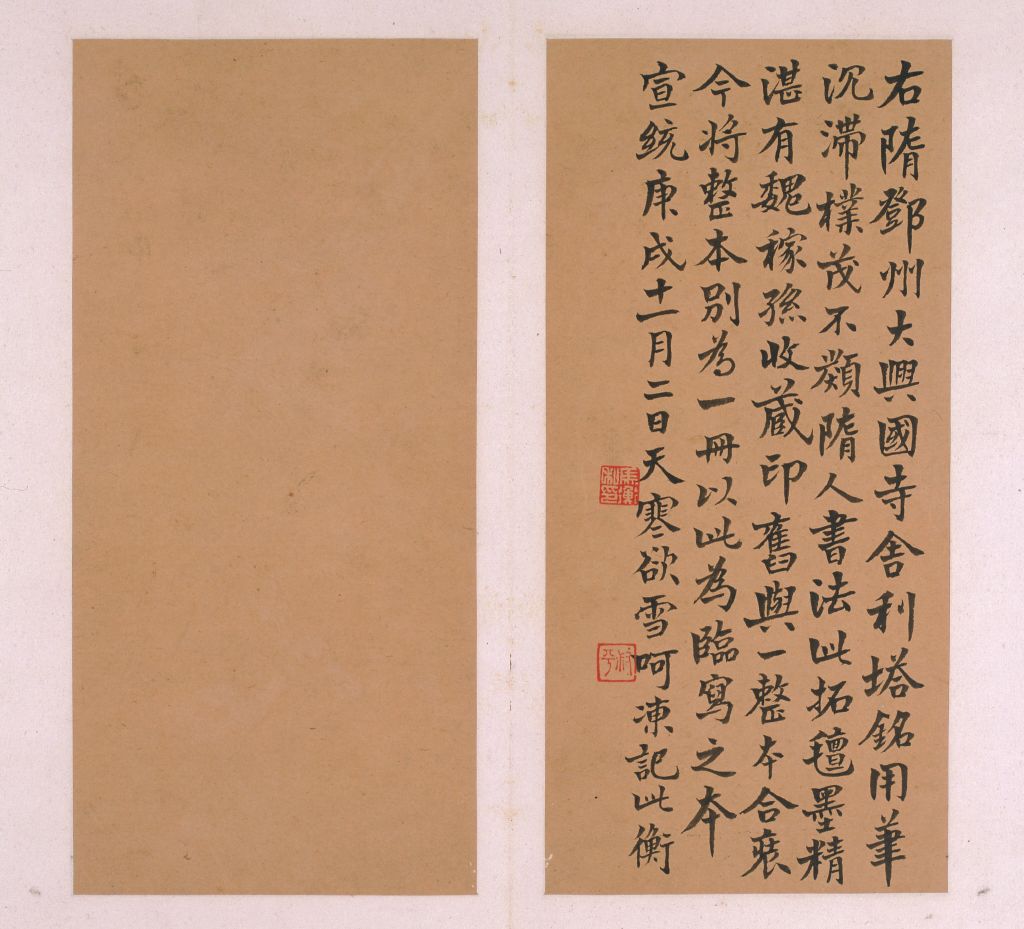 右隋鄧州大興國寺舍利塔銘用筆
沉滯樸茂不纇隋人書法此拓氊墨精
湛有魏稼孫收藏印舊與一整本合裱
今将整本別為一冊以此為臨寫之本
宣統庚戌十一月二日天寒欲雪呵凍記此衡
馬衡
叔平